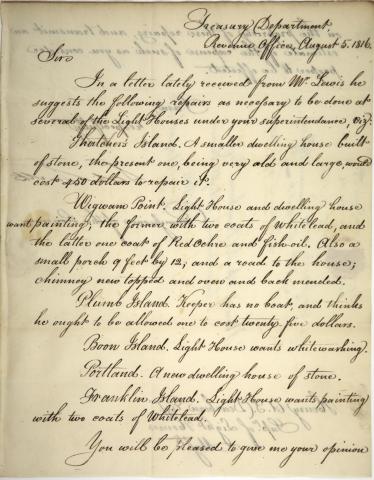 Treasury Department
Revenue Office, August 5. 1816.
Sir
In a letter lately received from Mr. Lewis he
suggests the following repairs as necessary to be done at
several of the Light Houses under your superintendance, viz:
Thatchers Island. A smaller dwelling house built
of stone, the present one, being very old and large, would
cost 450 dollars to repair it.
Wigwam Point. Light House and dwelling house
want painting; the former with two coats of Whitelead, and
the latter one coat of Red Ochre and fish-oil. Also a
small porch 9 feet by 12; and a road to the house;
chimney new topped and oven and back mended.
Plumb Island. Keeper has no boat, and thinks
he ought to be allowed one to cost twenty five dollars.
Boon Island. Light House wants whitewashing.
Portland. A new dwelling house of stone.
Franklin Island. Light House wants painting
with two coats of Whitelead.
You will be pleased to give me your opinion